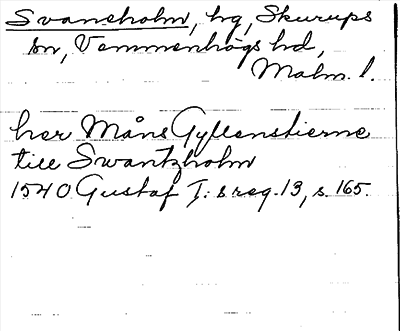 Svaneholm, hg, Skurups
sn, Vemmenhögs hd,
Malm. l.
her Måns Gyllenstierne
till Swantzholm
1540 Gustaf I:s reg. 13, s. 165.